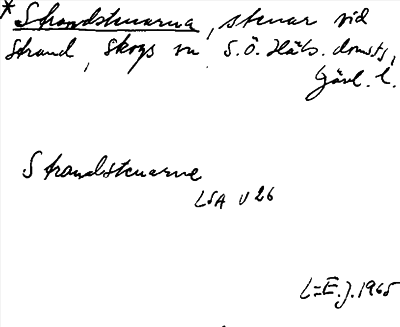 *Strandstenarna, stenar vid
Strand, Skogs sn S.Ö. Häls. doms.,
Gävl. l.
Strandstenarne
LSA U 26
L=E.J. 1965